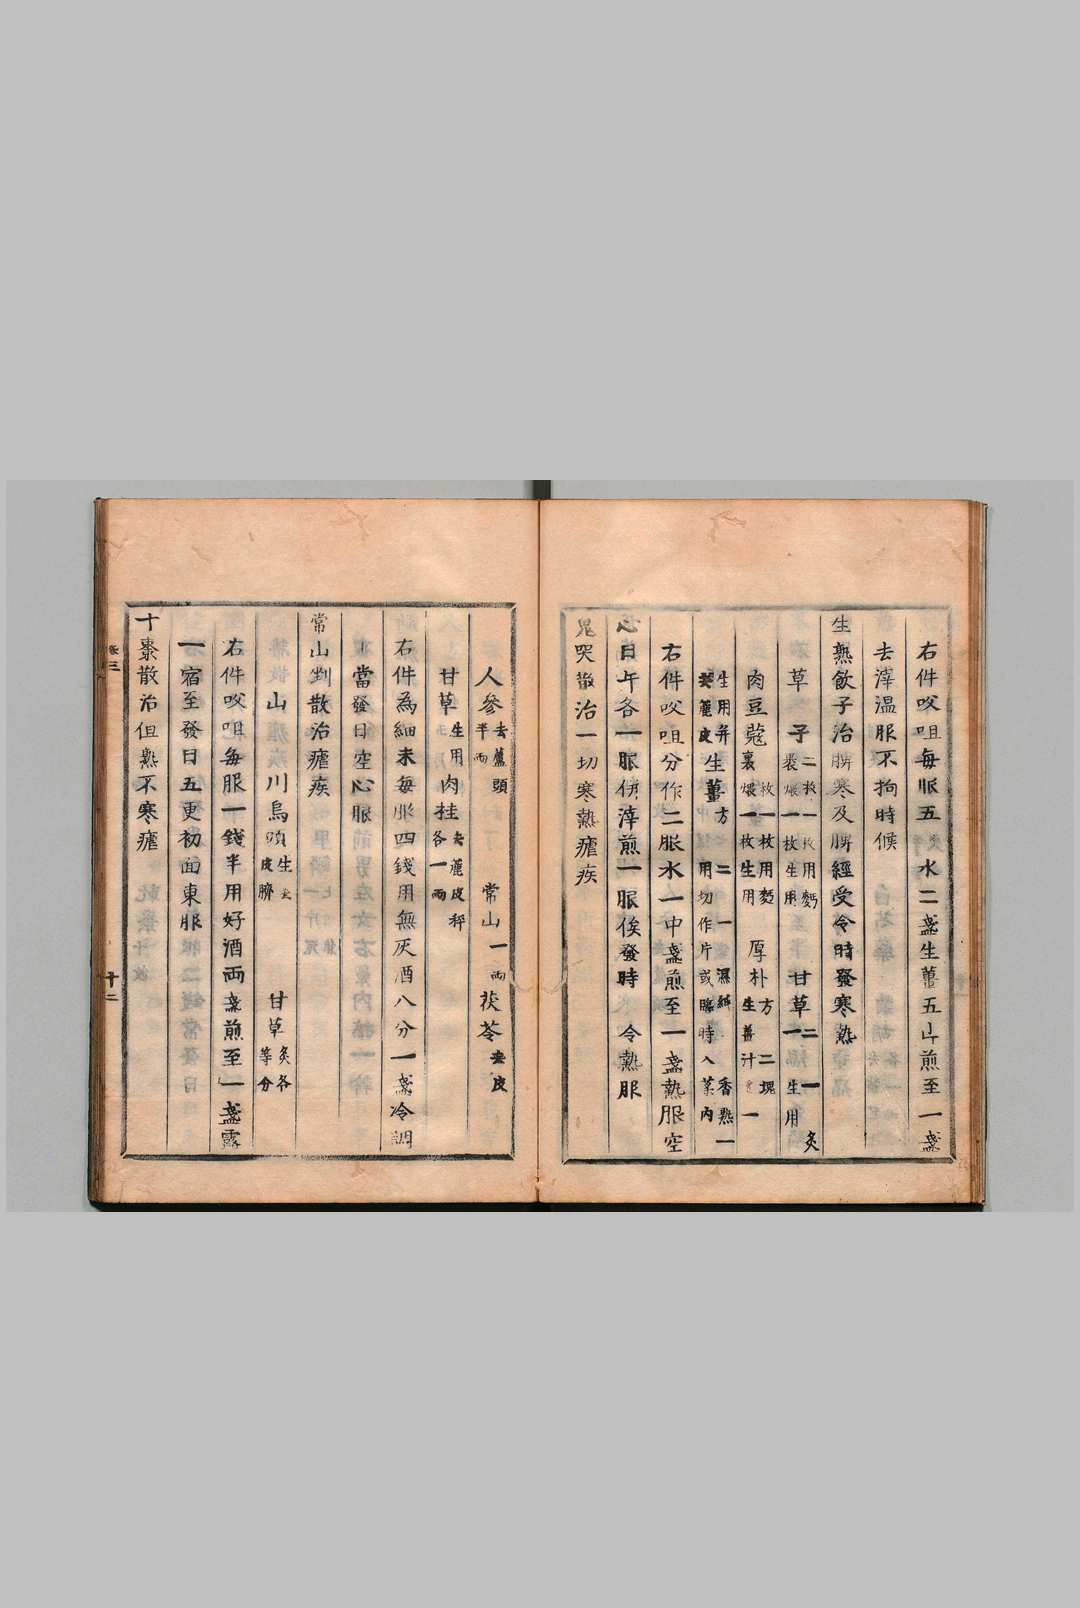 右件㕮咀每服五水二盞生薑五片煎至一盞
去滓溫服不拘時候
生熟飲子治脾寒及脾經受令時發寒熱
草子二枚一枚用麪裹煨一枚生用甘草二一一生用炙
肉豆蔻二枚一枚用麪裹煨一枚生用厚朴方二塊生薑汁一
生用并去麄皮生薑方二一濕紙香熟一用切作片或臨時入菓內
右件㕮咀分作二服水一中盞煎至一盞熱服空
心日午各一服併滓煎一服俟發時令熱服
鬼哭散治一切寒熱瘧疾
人參去蘆頭半兩常山一兩茯苓去皮
甘草生用肉桂去麄皮秤各一兩
右件為細末每服四錢用無灰酒八分一盞冷調
當發日空心服
常山剉散治瘧疾
山川烏頭生去皮臍甘草炙各等分
右件㕮咀每服一錢半用好酒兩盞煎至一盞露
一宿至發日五更初面東服
十棗散治但熱不寒瘧
卷三
十二